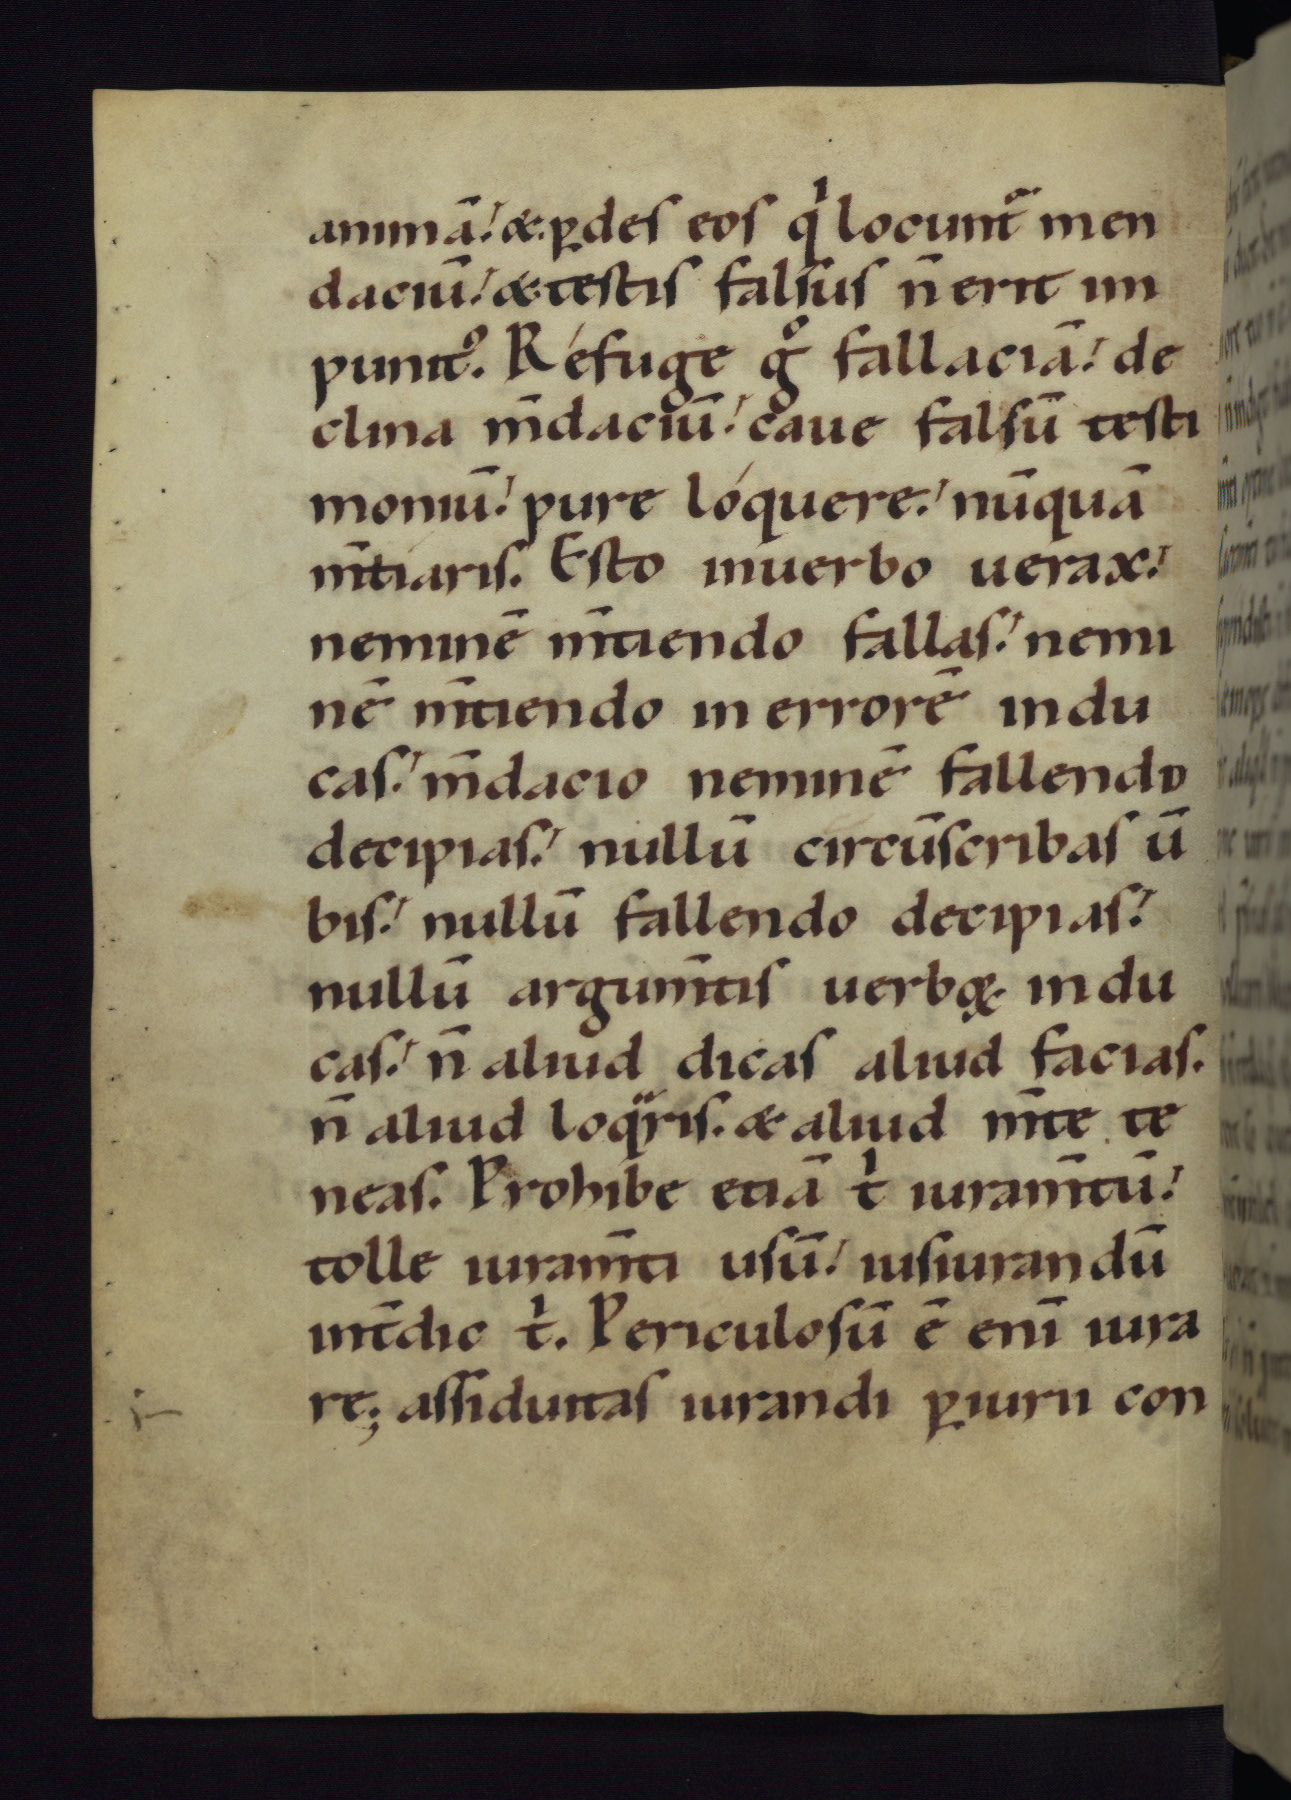 animā. & ꝑdes eos qͥ locunt᷑ men
daciū. & testis falsus n̄ erit im
punitꝰ. Refuge gͦ fallaciā. de
clina m̄daciū. caue falsū testi
moniū. pure loquere. nūquā
m̄tiaris. Esto inuerbo uerax.
neminē m̄tiendo fallas. nemi
nē m̄tiendo in errorē indu
cas. m̄dacio neminē fallendo
decipias. nullū circūscribas ū
bis. nullū fallendo decipias.
nullū argum̄tis uerboꝝ indu
cas. n̄ aliud dicas aliud facias.
n̄ aliud loqᷓris. & aliud m̄te te
neas. Prohibe etiā tͥ iuram̄tū.
tolle iuram̄ti usū. iusiurandū
int̄dic tͥ. Periculosū ē enī iura
re; assiduitas iurandi ꝑiurii con